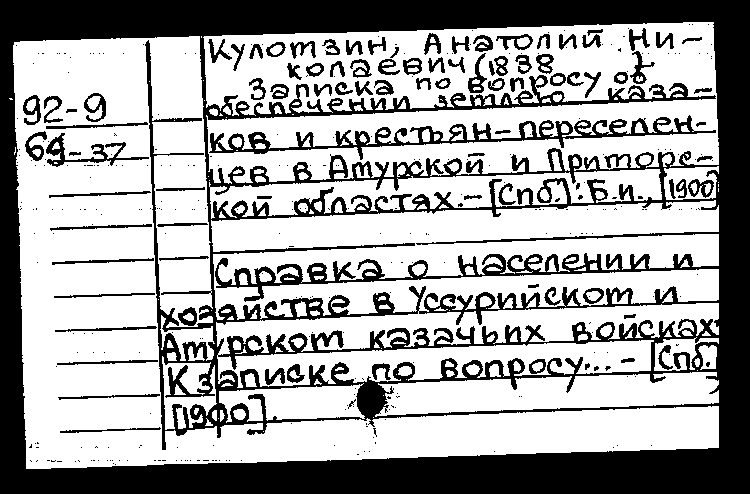 Куломзин, Анатолий Ни-
колаевич (1838 }
Записка по вопросу об
92-9
обеспечении землею каза-
69-37
ков и крестьян-переселен-
цев в Амурской и Приморс-
кой областях.-[Спб.]: Б.и., [1900]
Справка о населении и
хозяйстве в Уссурийском и
Амурском казачьих войсках
К записке по вопросу...-[Спб.],
[1900].